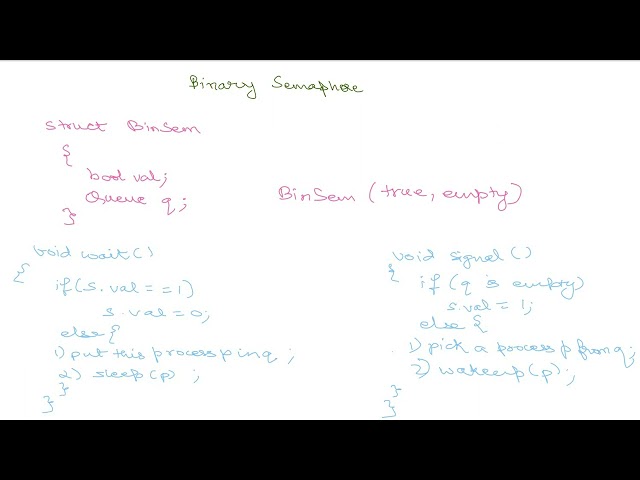 Binary Semaphore
struct BinSem
{
bool val;
Queue q;
}
BinSem (true, empty)
void wait()
{
if(s.val==1)
s.val=0;
else{
1) put this process p in q ;
2) sleep(p) ;
}
}
void signal()
{
if (q is empty)
s.val=1;
else {
1) pick a process p from q;
2) wakeup(p);
}
}